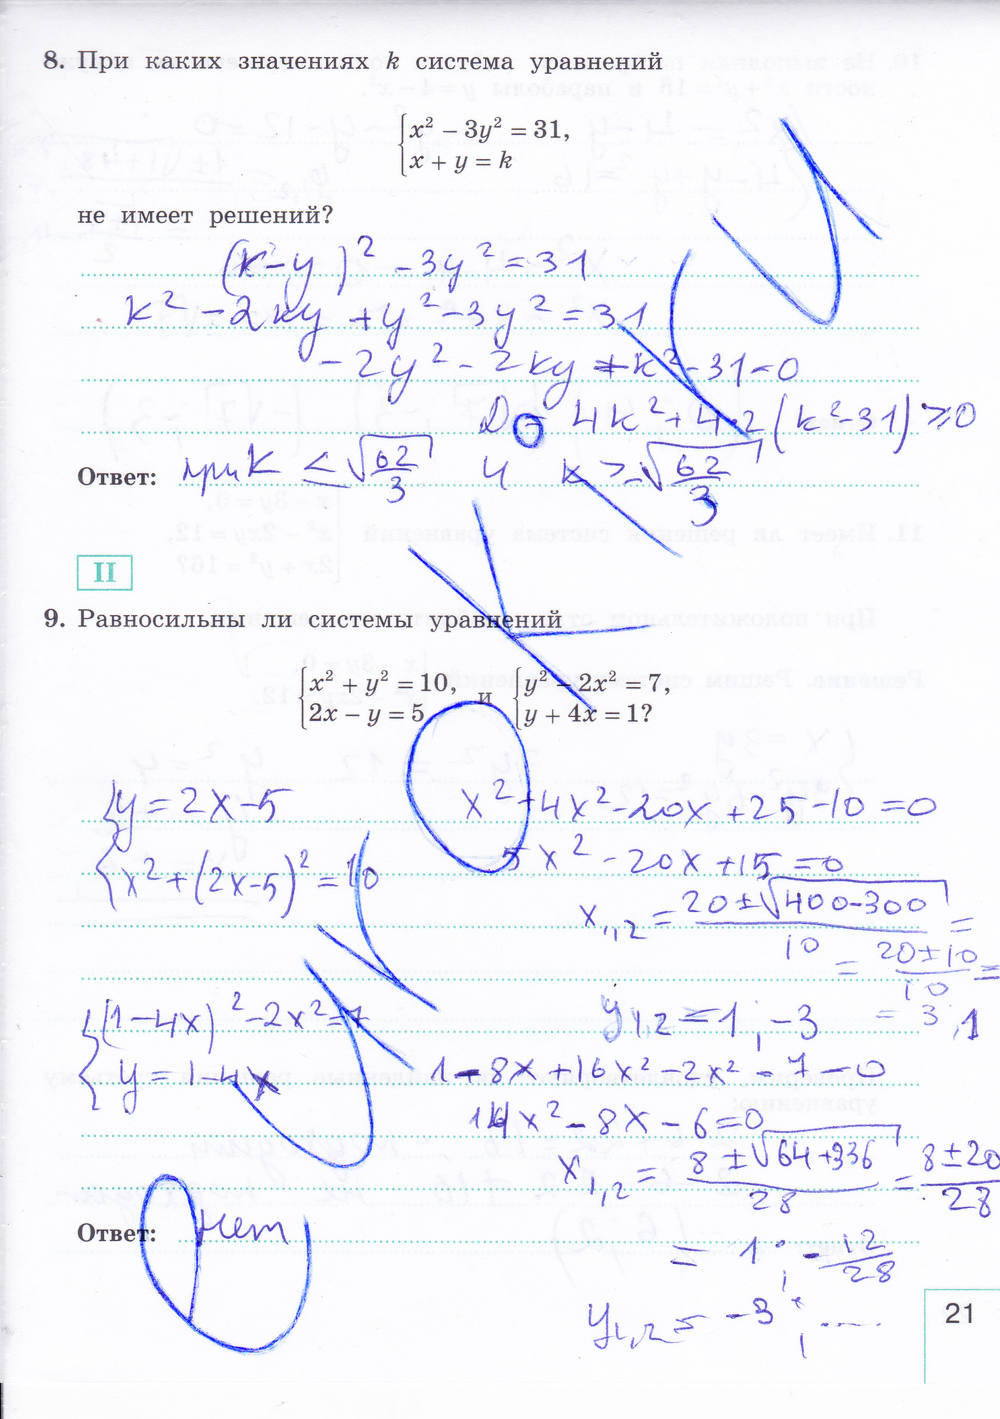 8. При каких значениях k система уравнений
x² − 3y² = 31,
x + y = k
не имеет решений?
(k-y)² - 3y² = 31
k² - 2ky + y² - 3y² = 31
- 2y² - 2ky + k² - 31 = 0
4k² + 4·2(k² - 31) ≥ 0
Ответ: при k ≤ √62/3 и k > -√62/3
II
9. Равносильны ли системы уравнений
x² + y² = 10, и y² − 2x² = 7,
2x − y = 5 y + 4x = 1?
y = 2x - 5 x² + 4x² - 20x + 25 - 10 = 0
x² + (2x-5)² = 10 5x² - 20x + 15 = 0
x₁,₂ = 20 ± √400-300 / 10 =
= 20±10 / 10 =
(1-4x)² - 2x² = 7 y₁,₂ = 1, -3 = 3, 1
y = 1-4x 1 - 8x + 16x² - 2x² - 7 = 0
14x² - 8x - 6 = 0
x₁,₂ = 8 ± √64+336 / 28 = 8 ± 20 / 28
Ответ: нет
= 1; - 12/28
y₁,₂ = -3; ....
21